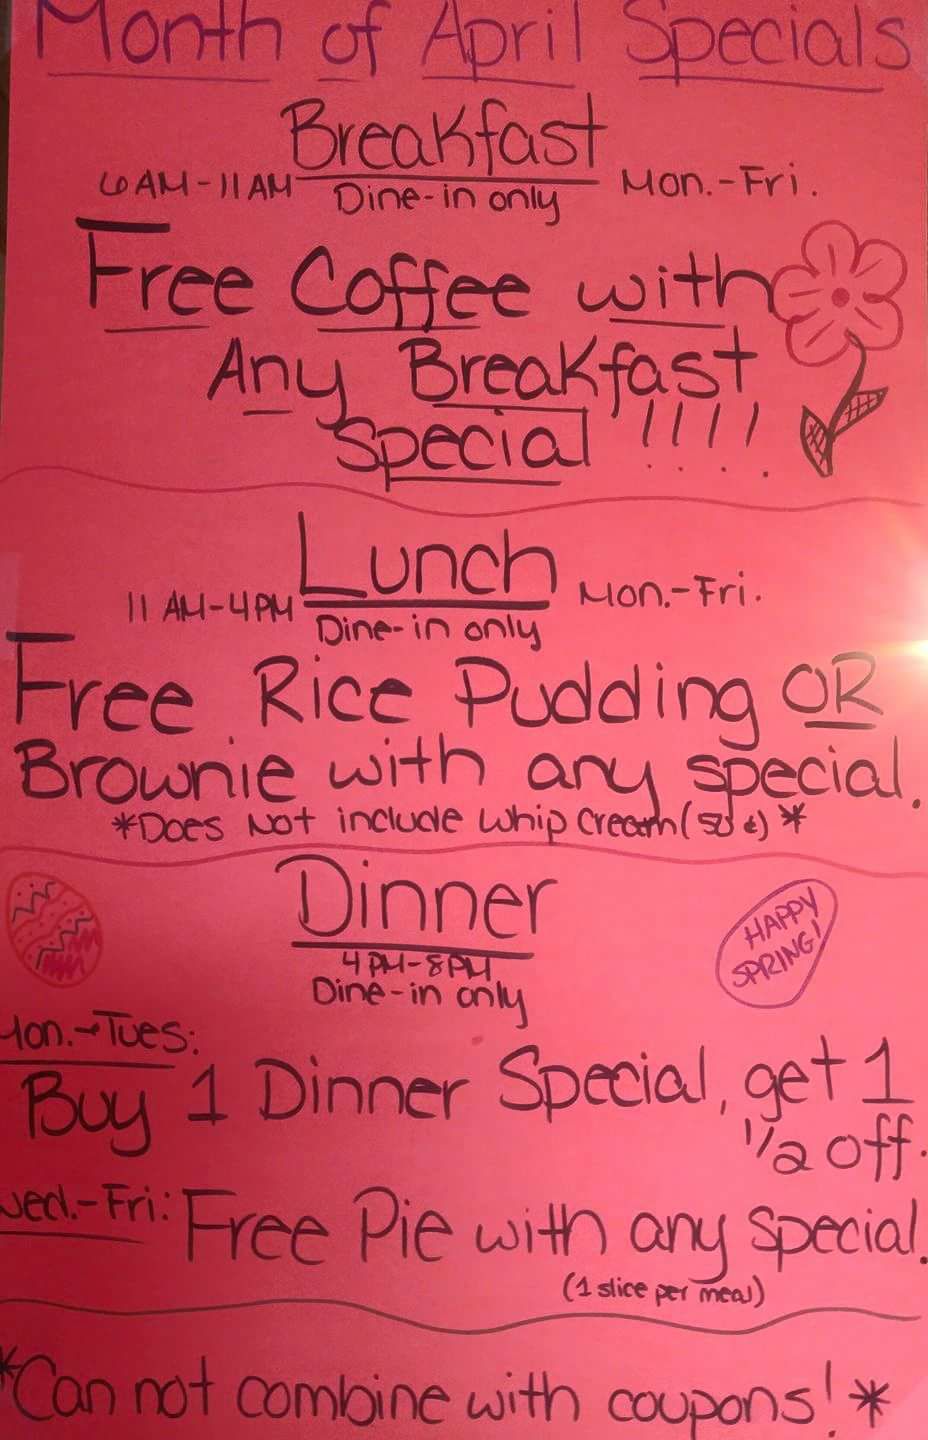 Month of April Specials
Breakfast
6 AM-11 AM Dine-in only Mon.-Fri.
Free Coffee with
Any Breakfast
Special !!!!
Lunch
11 AM-4PM Dine-in only Mon.-Fri.
Free Rice Pudding OR
Brownie with any special.
*Does Not include whip cream (50¢) *
Dinner
4 PM-8PM
Dine-in only
HAPPY
SPRING!
Mon.-Tues:
Buy 1 Dinner Special, get 1
1/2 off.
Wed.-Fri: Free Pie with any special.
(1 slice per meal)
*Can not combine with coupons! *